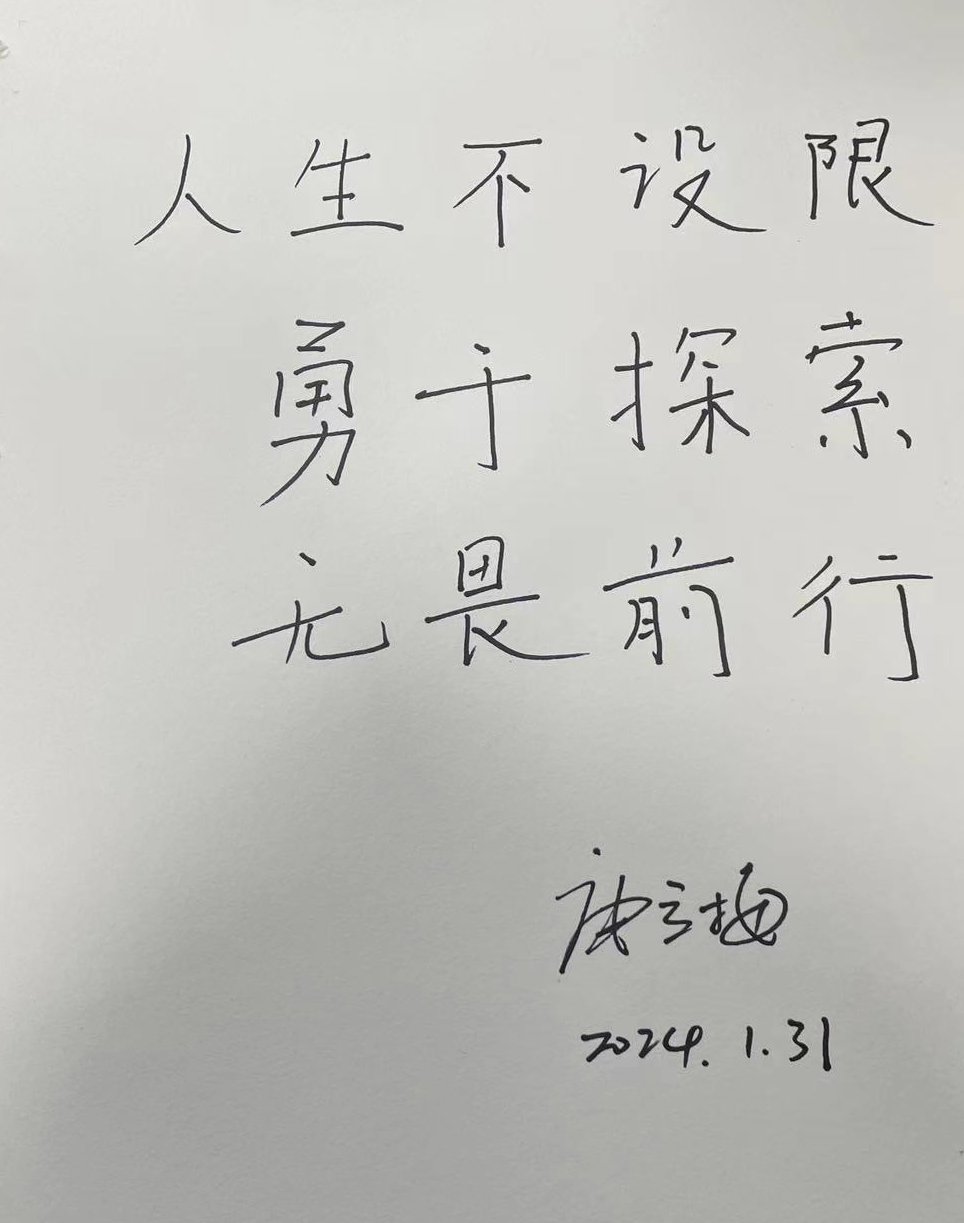 人生不设限
勇于探索
无畏前行
2024.1.31